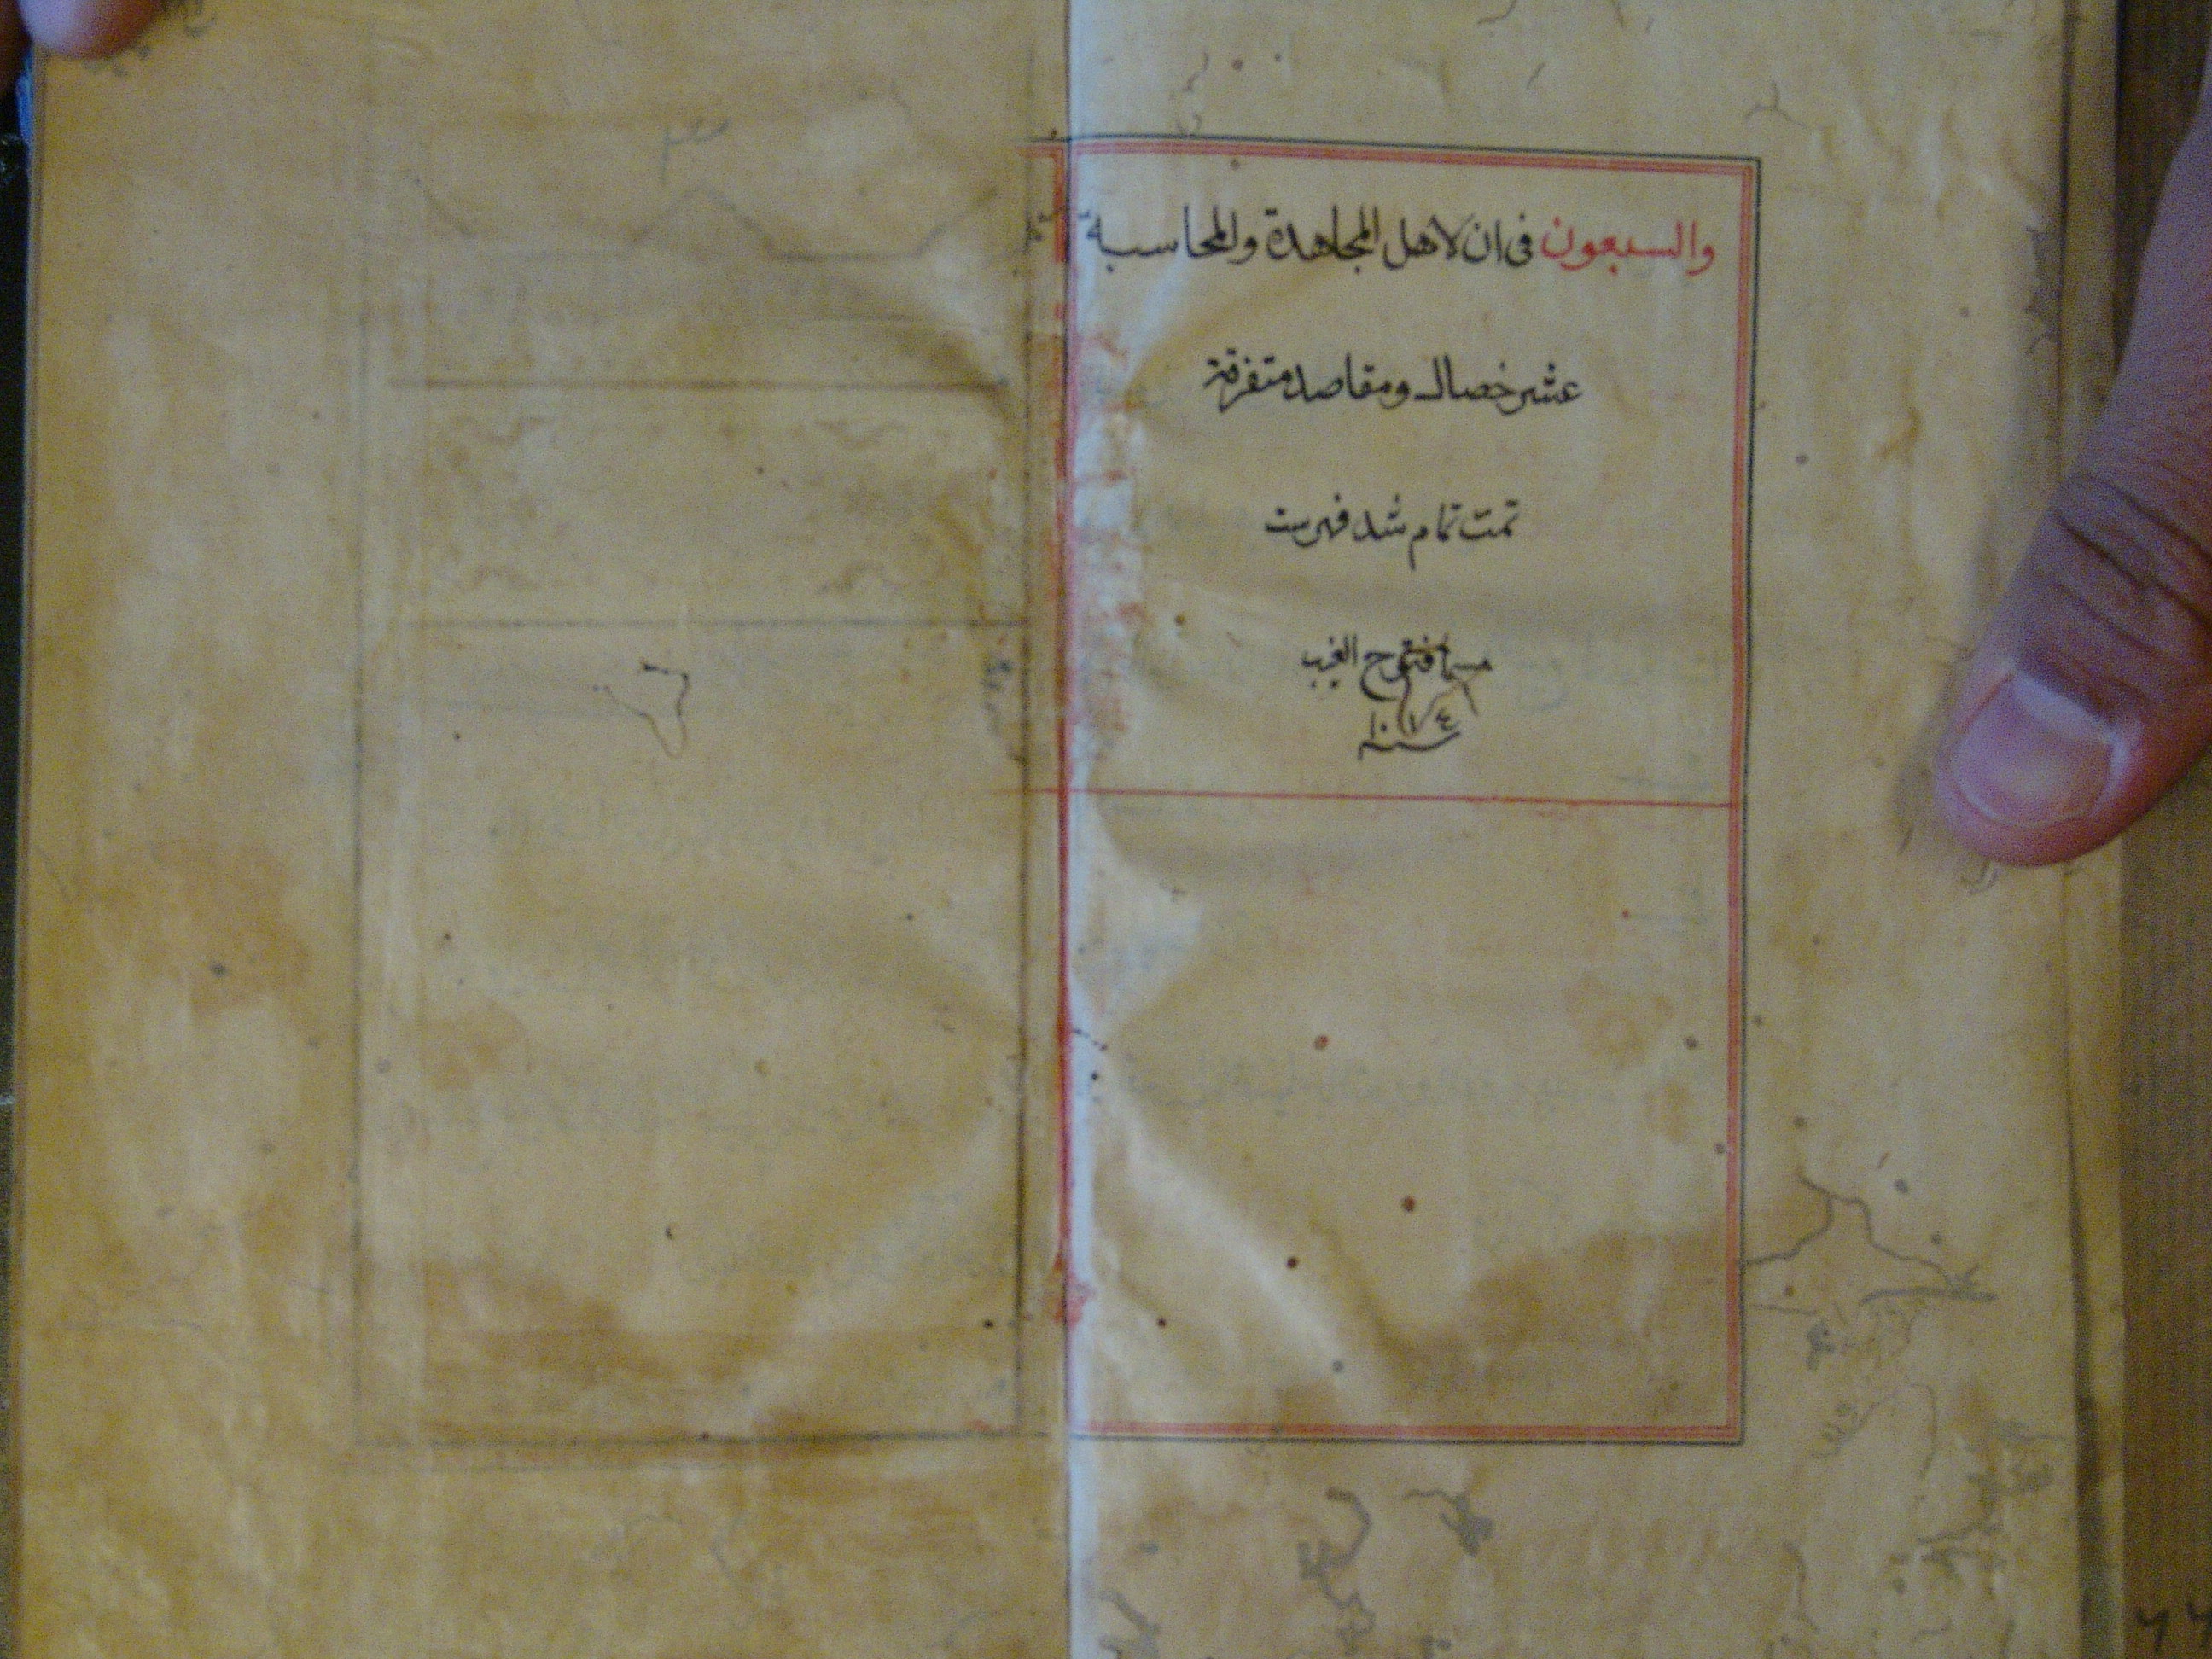 والسبعون فى ان لاهل المجاهدة والمحاسبة
عشر خصال ومقاصد متفرقة
تمت تمام شد فهرست
فتوح الغيب
سنه